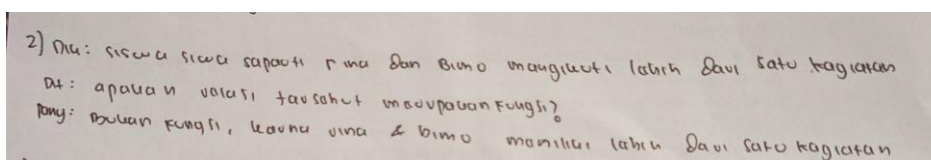 2) Dik: siswa siwa sapauti rina dan Bimo mangikuti labih davi satu kagiatan
Dit: apakah valasi tavsabut mavupakan Fungsi?
Pony: Bukan Fungsi, kavna vina & bimo mamiliki labih davi satu kagiatan